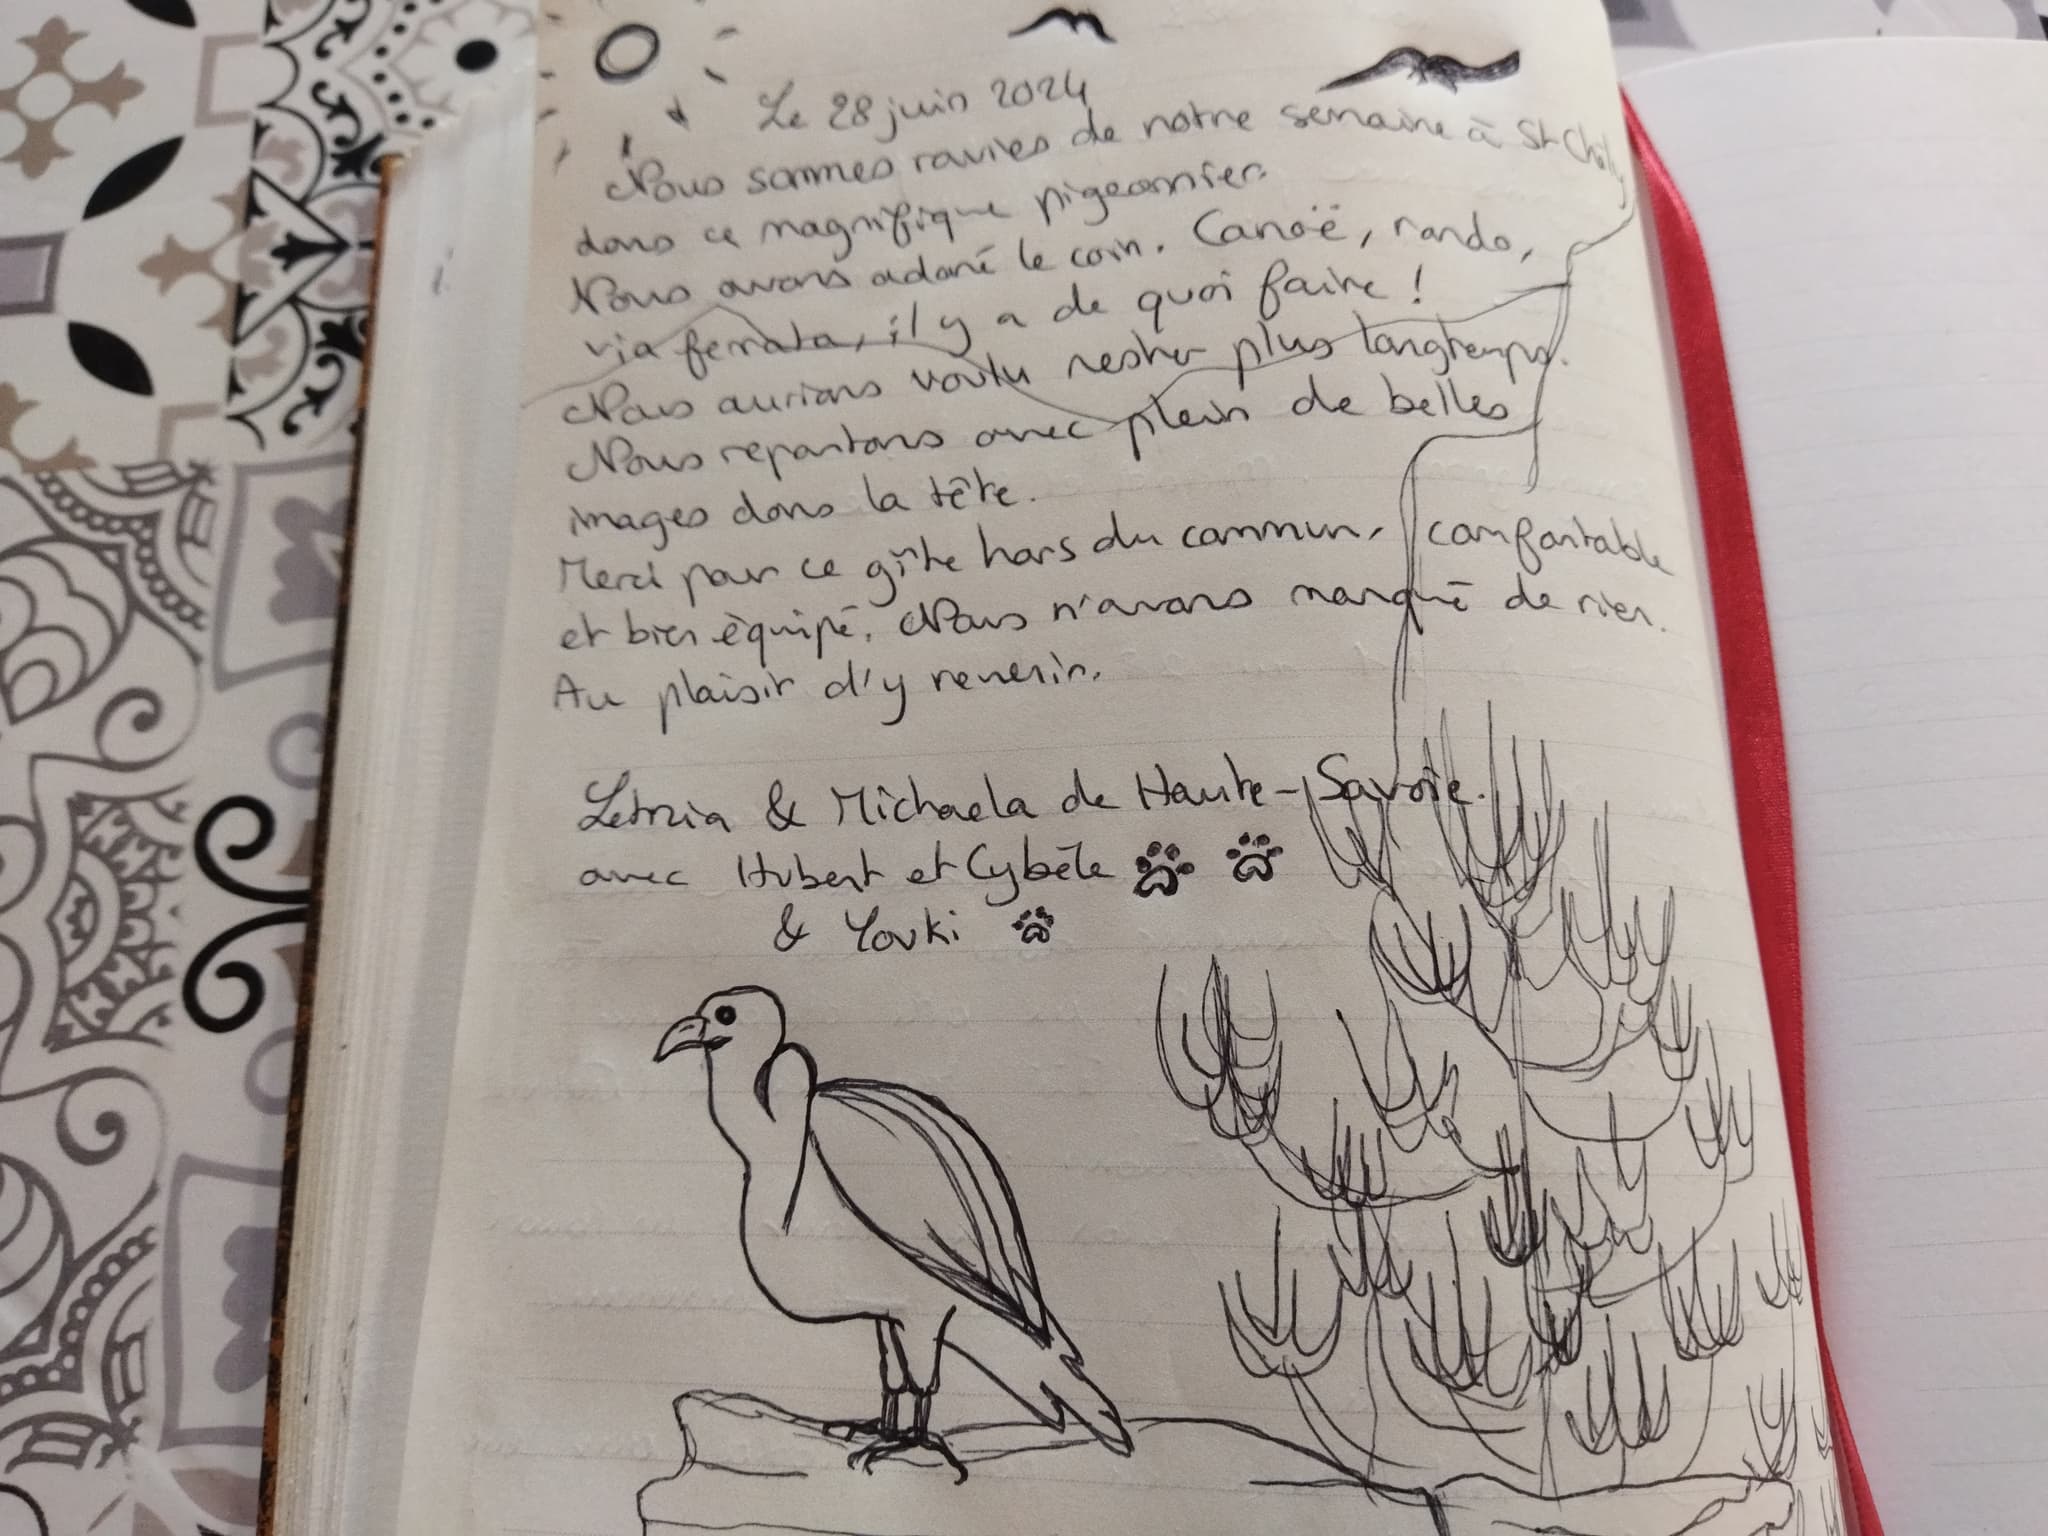 Le 28 juin 2024
Nous sommes ravies de notre semaine à St Chély
dans ce magnifique pigeonnier.
Nous avons adoré le coin. Canoë, rando,
via ferrata, il y a de quoi faire !
Nous aurions voulu rester plus longtemps.
Nous repartons avec plein de belles
images dans la tête.
Merci pour ce gîte hors du commun, confortable
et bien équipé. Nous n'avons manqué de rien.
Au plaisir d'y revenir.
Letizia & Michaela de Haute-Savoie.
avec Hubert et Cybèle
& Youki